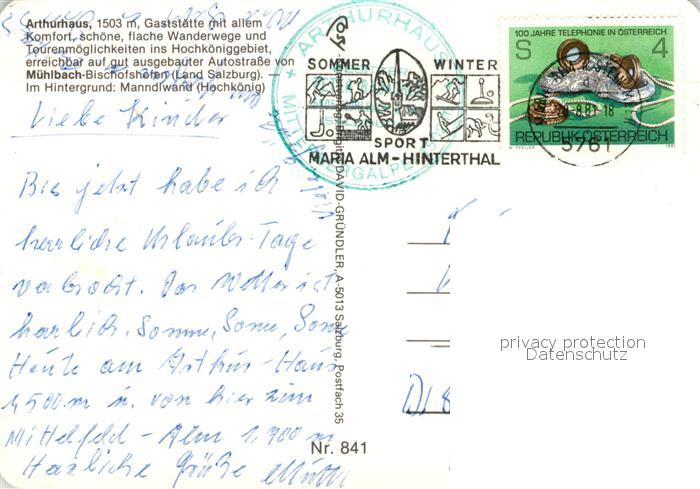 Arthurhaus, 1503 m, Gaststätte mit allem
Komfort, schöne, flache Wanderwege und
Tourenmöglichkeiten ins Hochköniggebiet,
erreichbar auf gut ausgebauter Autostraße von
Mühlbach-Bischofshofen (Land Salzburg).
Im Hintergrund: Manndlwand (Hochkönig)
Liebe Kinder
Bis jetzt habe ich
herrliche Urlaubs-Tage
verbracht. Das Wetter ist
herrlich. Sonne, Sonne, Sonne
Heute am Arthur-Haus
1500 m u. von hier zum
Mittelfeld-Alm 1.700 m
Herzliche Grüße Mutti
ARTHURHAUS
SOMMER WINTER
SPORT
MARIA ALM-HINTERTHAL
100 JAHRE TELEPHONIE IN ÖSTERREICH
S 4
REPUBLIK ÖSTERREICH
1981
-8.81-18
5761
DAVID-GRÜNDLER, A-5013 Salzburg, Postfach 35
Nr. 841
privacy protection
Datenschutz